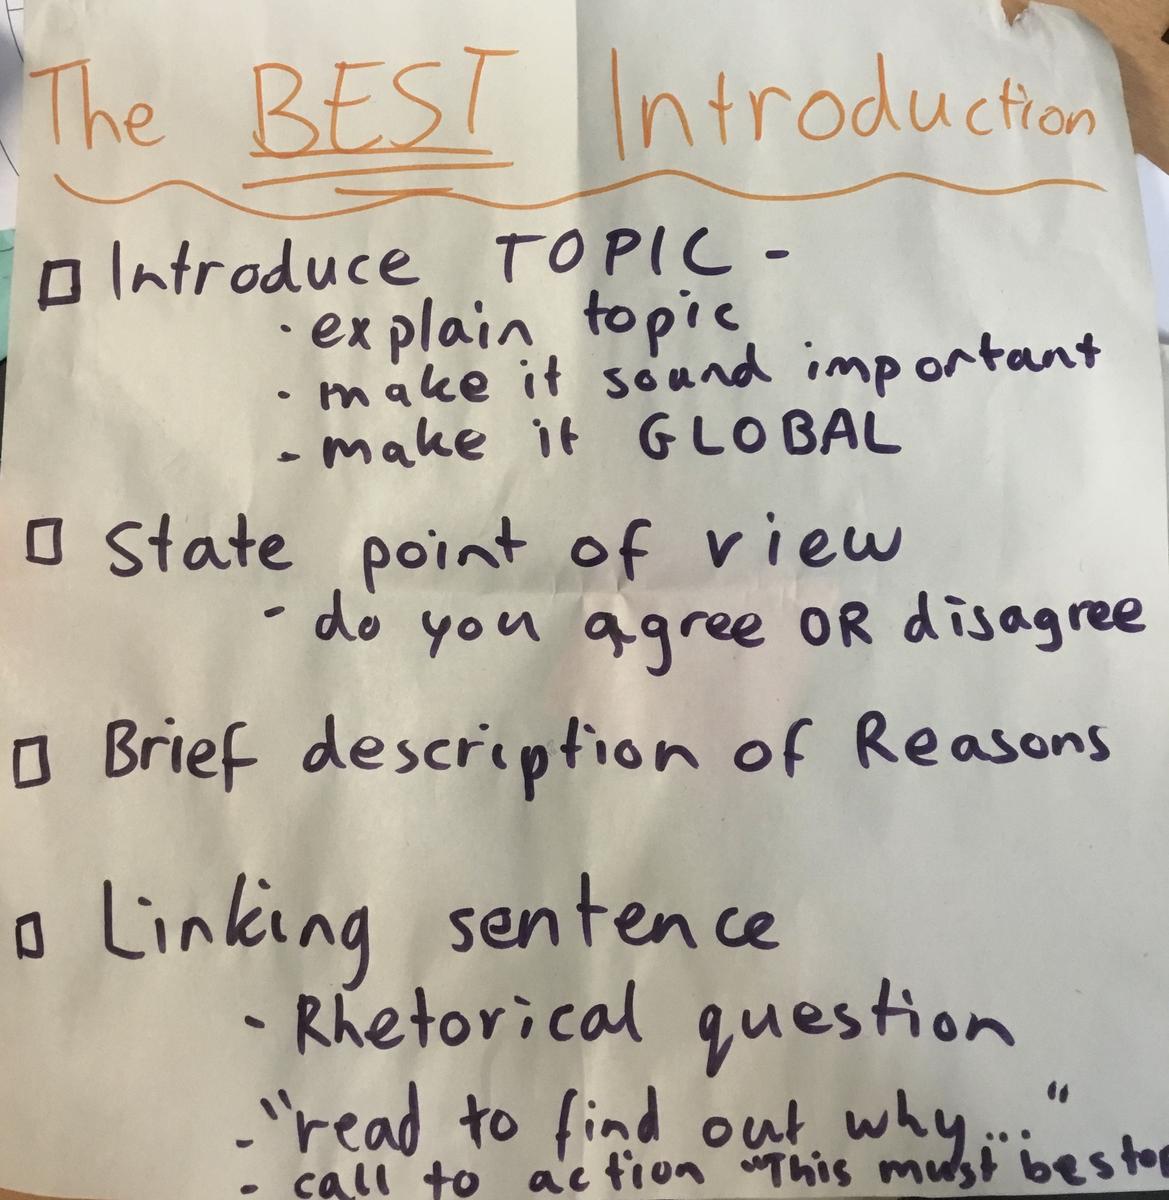 The BEST Introduction
Introduce TOPIC -
· explain topic
- make it sound important
- make it GLOBAL
State point of view
- do you agree OR disagree
Brief description of Reasons
Linking sentence
- Rhetorical question
- "read to find out why..."
- call to action "This must be